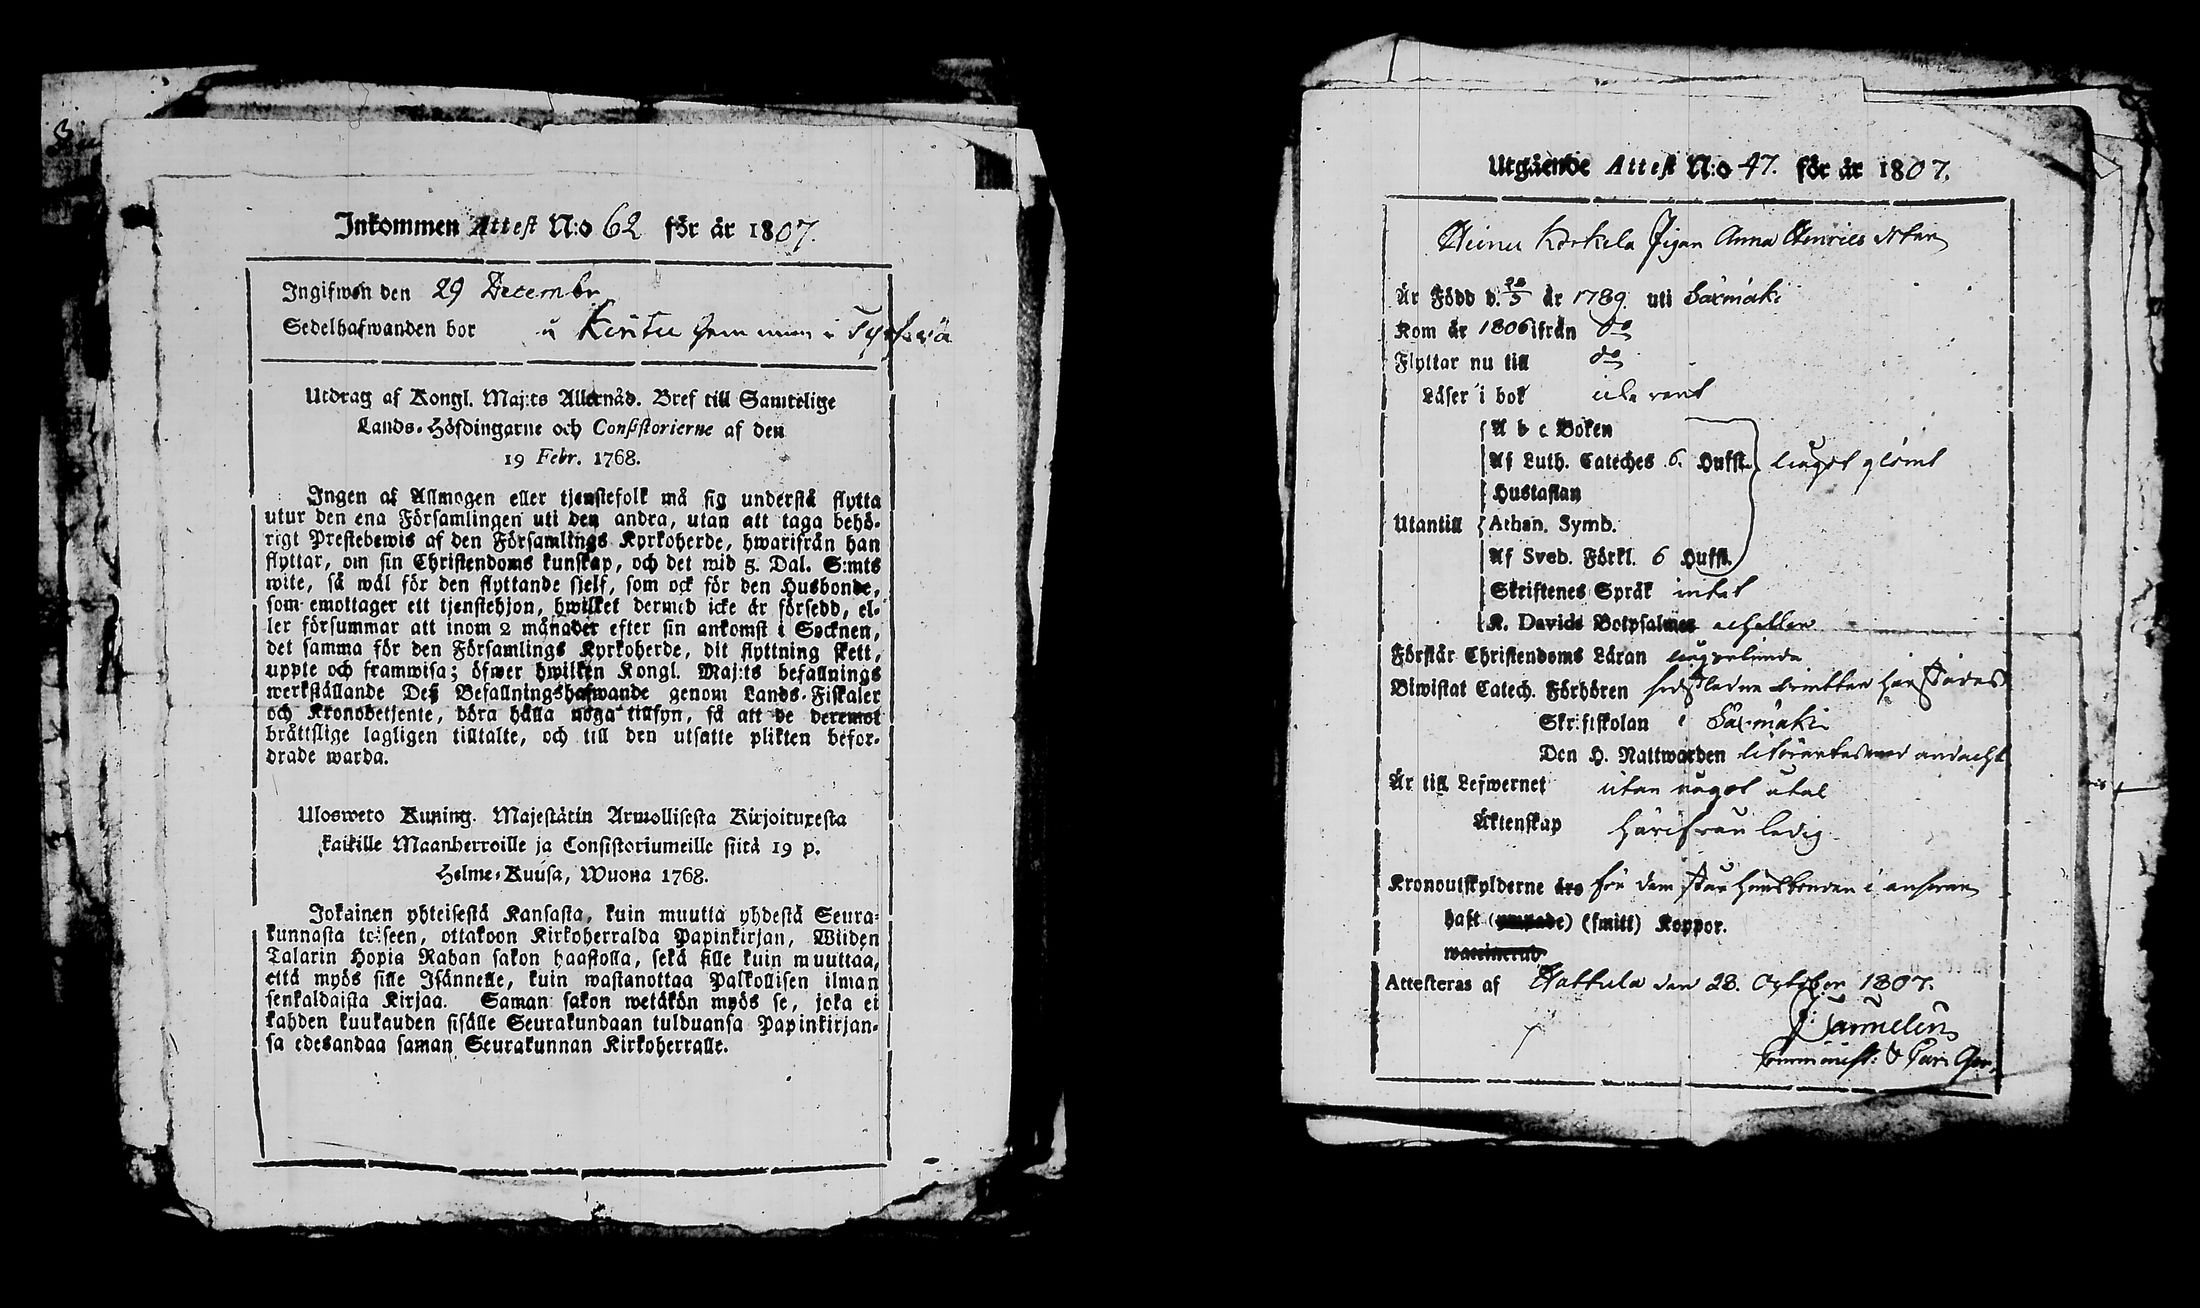 Inkommen Attest N:o 62 för år 1807.
Ingifwen den 29 Decembr
Sedelhafwanden bor
Utdrag af Kongl. Maj:ts Allernåd. Bref till Samtelige
Lands-Höfdingarne och Consistorierne af den
19 Febr. 1768.
Ingen af Allmogen eller tjenstefolk må sig understå flytta
utur den ena Församlingen uti den andra, utan att taga behö-
rigt Prestebewis af den Församlings Kyrkoherde, hwarifrån han
flyttar, om sin Christendoms kunskap, och det wid 5. Dal. S:mts
wite, så wäl för den flyttande sjelf, som ock för den Husbonde,
som emottager ett tjenstehjon, hwilket dermed icke är försedd, el-
ler försummar att inom 2 månader efter sin ankomst i Socknen,
det samma för den Församlings Kyrkoherde, dit flyttning skett,
uppte och framwisa; öfwer hwilken Kongl. Maj:ts befallnings
werkställande Deß Befallningshafwande genom Lands-Fiskaler
och Kronobetjente, böra hålla noga tillsyn, så att de deremot
bråttslige lagligen tilltalte, och till den utsatte plikten befor-
drade warda.
Ulosweto Kuning. Majestätin Armollisesta Kirjoituxesta
kaikille Maanherroille ja Consistoriumeille siitä 19 p.
Helme-Kuusa, Wuona 1768.
Jokainen yhteisestä Kansasta, kuin muutta yhdestä Seura-
kunnasta toiseen, ottakoon Kirkoherralda Papinkirjan, Wiiden
Talarin Hopia Rahan sakon haastolla, sekä sille kuin muuttaa,
että myös sille Isännelle, kuin wastanottaa Palkollisen ilman
senkaldaista Kirjaa. Saman sakon wetäkön myös se, joka ei
kahden kuukauden sisälle Seurakundaan tulduansa Papinkirjan-
sa edesandaa saman Seurakunnan Kirkoherralle.
Utgående Attest N:o 47. för år 1807.
Heinu Kirkela Pigan Anna Henrics dotter
Är Född d. år 1789 uti Saxmäki
Kom år 1806 ifrån do
Flyttar nu till do
Läser i bok
A b c Boken
Af Luth. Cateches 6. Hufst. något glömt
Hustaflan
Utantill Athan. Symb.
Af Sveb. Förkl. 6 Hufst.
Skriftenes Språk intet
K. Davids Botpsalmer
Förstår Christendoms Läran
Biwistat Catech. Förhören
Skriftskolan i Saxmäki
Den H. Nattwarden med andacht
Är till Lefwernet utan något åtal
Äktenskap härifrån ledig
Kronoutskylderne för dem står husbonden i answar
haft (smitt) Koppor.
Attesteras af Hattula den 28. October 1807.